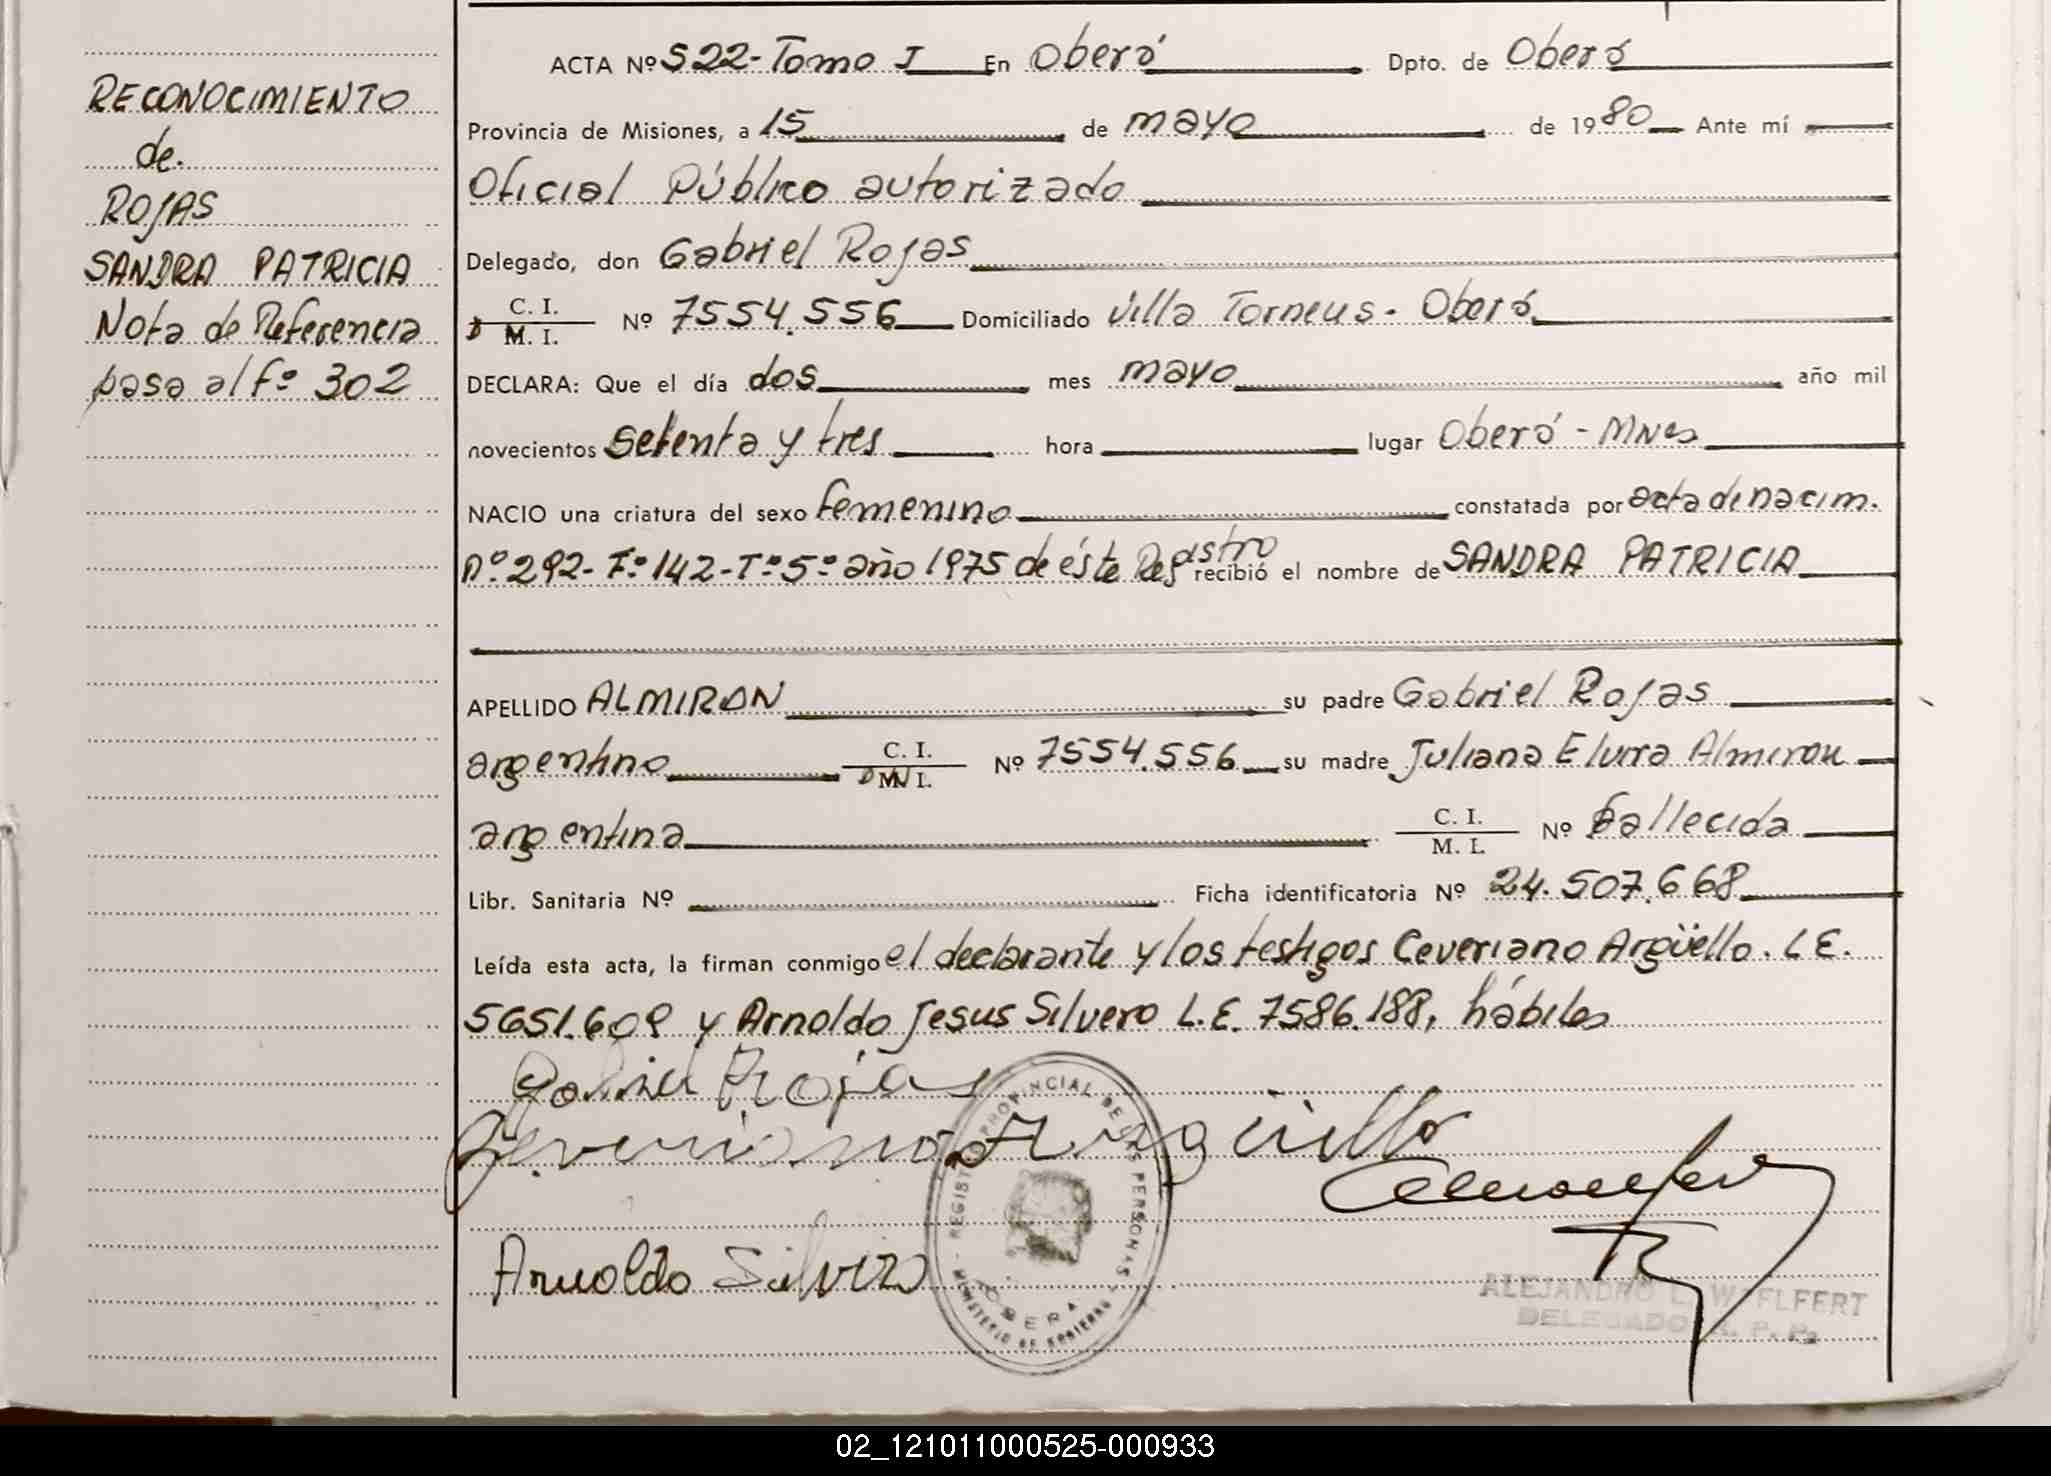 RECONOCIMIENTO
de.
ROJAS
SANDRA PATRICIA
Nota de Referencia
pasa al fº 302
ACTA Nº 522-Tomo I En Oberá Dpto. de Oberá
Provincia de Misiones, a 15 de mayo de 1980 Ante mí
Oficial Público autorizado
Delegado, don Gabriel Rojas
C. I.
M. I. Nº 7554.556 Domiciliado Villa Torneus - Oberá
DECLARA: Que el día dos mes mayo año mil
novecientos setenta y tres hora lugar Oberá - MNes
NACIO una criatura del sexo femenino constatada por acta de nacim.
Aº 292- Fº 142-Tº 5º año 1975 de éste Registro recibió el nombre de SANDRA PATRICIA
APELLIDO ALMIRON su padre Gabriel Rojas
argentino C. I. Nº 7554.556 su madre Juliana Elvira Almiron
M. I.
argentina C. I. Nº fallecida
M. I.
Libr. Sanitaria Nº Ficha identificatoria Nº 24.507.668
Leída esta acta, la firman conmigo el declarante y los testigos Ceveriano Argüello. L E.
5651.609 y Arnoldo Jesus Silvero L.E. 7586.188, hábiles
Gabriel Rojas
Severiano Argüello
Arnoldo Silvero
REGISTRO PROVINCIAL DE LAS PERSONAS
OBERA
MINISTERIO DE GOBIERNO
ALEJANDRO L. WELFERT
DELEGADO R. P. P.
02_121011000525-000933